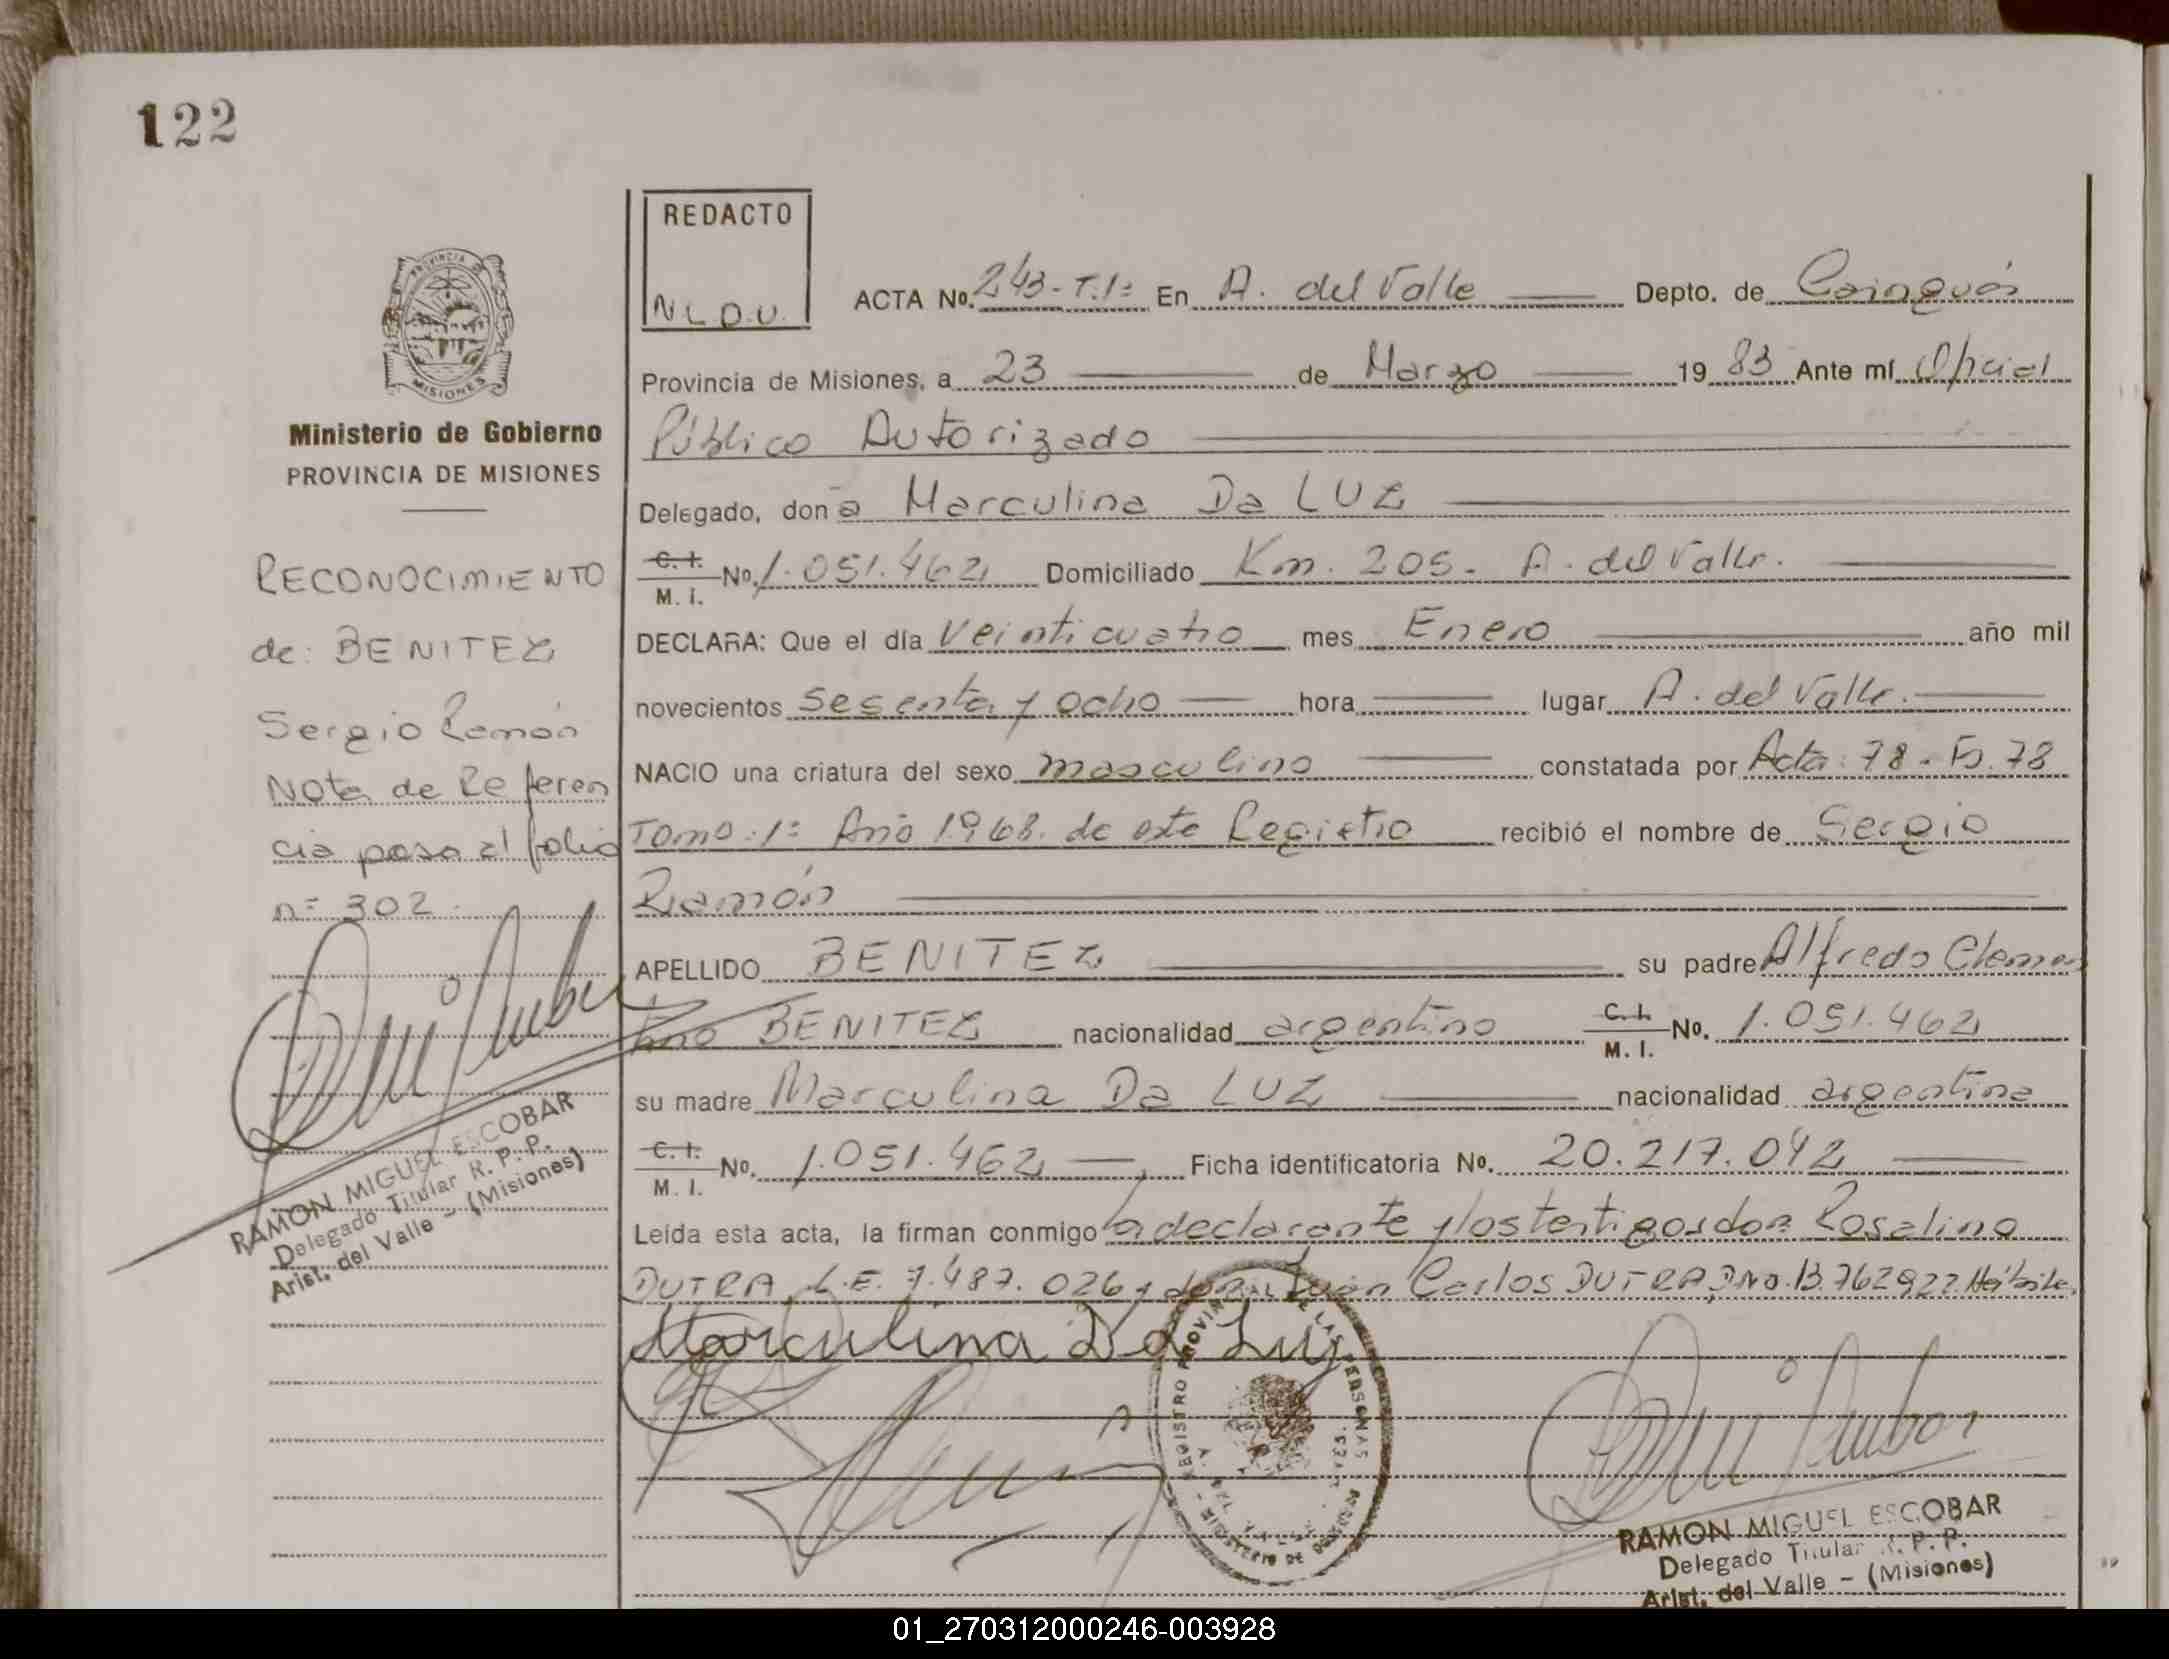 122
REDACTO
N L D.U.
ACTA No. 243-T.1º En A. del Valle Depto. de Cainguás
Provincia de Misiones, a 23 de Marzo 19 83 Ante mí Oficial
Público Autorizado
Delegado, don a Marculina Da LUZ
C. I. M. I. No. 1.051.462 Domiciliado Km. 205. A. del Valle.
DECLARA: Que el día Veinticuatro mes Enero año mil
novecientos sesenta y ocho hora lugar A. del Valle.
NACIO una criatura del sexo masculino constatada por Acta: 78. Fº. 78
Tomo: 1º Año 1968. de este Registro recibió el nombre de Sergio
Ramón
APELLIDO BENITEZ su padre Alfredo Clemen
tino BENITEZ nacionalidad argentino C. I. M. I. No. 1.051.462
su madre Marculina Da LUZ nacionalidad argentina
C. I. M. I. No. 1.051.462 Ficha identificatoria No. 20.217.042
Leída esta acta, la firman conmigo la declarante y los testigos don Rosalino
DUTRA L.E. 7.487.026 y don Juan Carlos DUTRA, DNI. 13.762922. Hábiles
Marculina Da Luz
PROVINCIA DE MISIONES
Ministerio de Gobierno
PROVINCIA DE MISIONES
RECONOCIMIENTO
de: BENITEZ
Sergio Ramón
Nota de Referen
cia pasa al folio
nº 302.
RAMON MIGUEL ESCOBAR
Delegado Titular R. P. P.
Arist. del Valle - (Misiones)
REGISTRO PROVINCIAL DE LAS PERSONAS
RAMON MIGUEL ESCOBAR
Delegado Titular R. P. P.
Arist. del Valle - (Misiones)
01_270312000246-003928